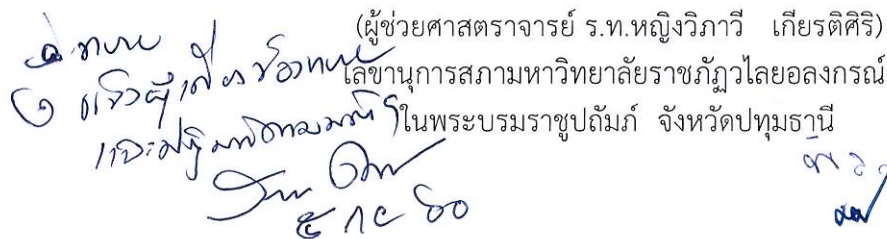 (ผู้ช่วยศาสตราจารย์ ร.ท.หญิงวิภาวี เกียรติศิริ)
เลขานุการสภามหาวิทยาลัยราชภัฏวไลยอลงกรณ์
ในพระบรมราชูปถัมภ์ จังหวัดปทุมธานี
ทราบ
แจ้งผู้เกี่ยวข้องทราบ
และปฏิบัติตามมติ
๕ กย ๖๐